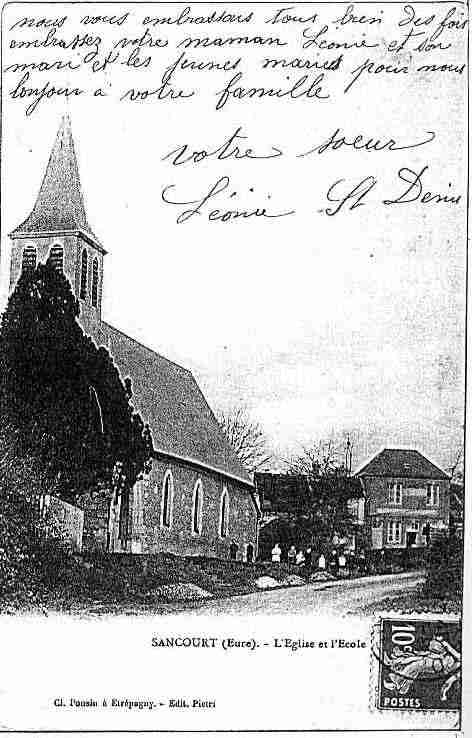 nous vous embrassons tous bien des fois
embrassez votre maman Léonie et son
mari et les jeunes mariés pour nous
bonjour à votre famille
votre soeur
Léonie St Denis
SANCOURT (Eure). - L'Eglise et l'Ecole
10c
POSTES
Cl. Pousin à Etrépagny. - Edit. Pietri